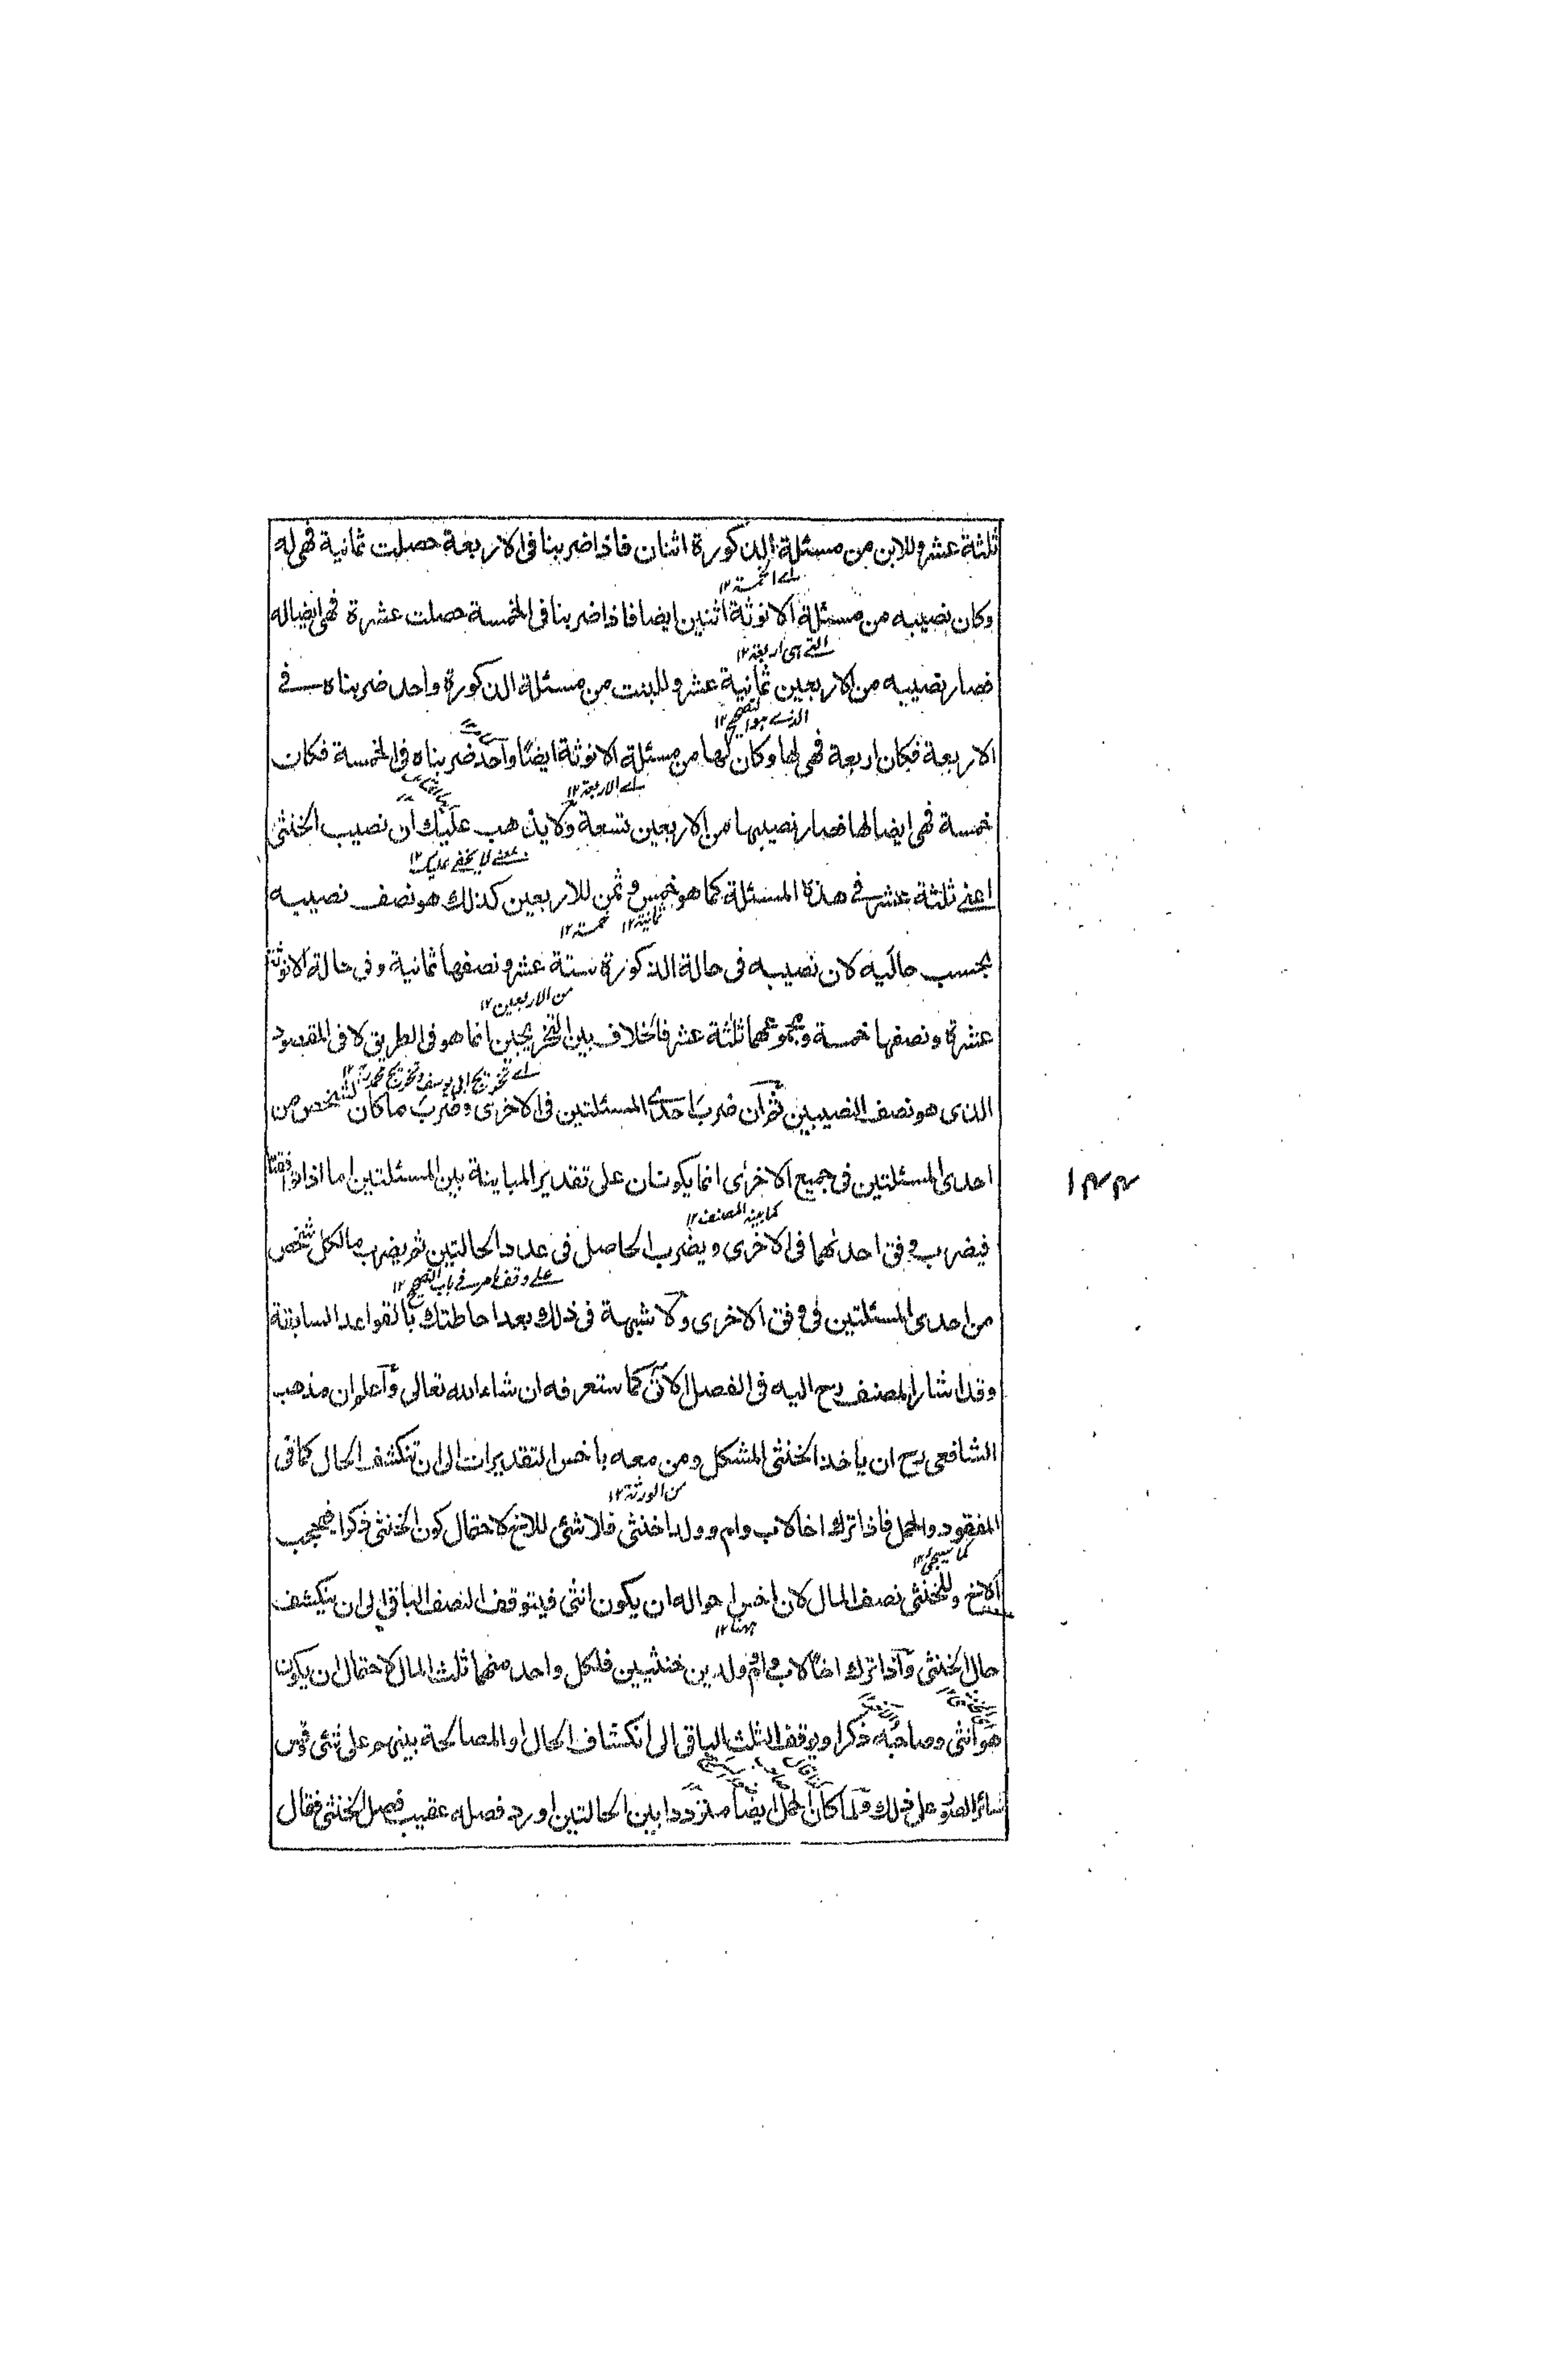 ثلثة عشر وللابن من مسئلة الذكورة اثنان فاذا ضربنا فى الاربعة حصلت ثمانية فهى له
اے الخمسة ١٢
وكان نصيبه من مسئلة الانوثة اثنين ايضا فاذا ضربنا فى الخمسة حصلت عشرة فهى ايضا له
التى هى اربعة ١٢
فصار نصيبه من الاربعين ثمانية عشر وللبنت من مسئلة الذكورة واحد ضربناه فے
الذے هو التصحيح ١٢
الاربعة فكان اربعة فهى لها وكان لها من مسئلة الانوثة ايضًا واحد ضربناه فى الخمسة فكان
اے الاربعة ١٢
خمسة فهى ايضا لها فصار نصيبها من الاربعين تسعة ولا يذهب عليك ان نصيب الخنثى
يعنے لا يخفے عليك ١٢
اعنے ثلثة عشر فے هذه المسئلة كما هو خمس وثمن للاربعين كذلك هو نصف نصيبيه
ثمانية ١٢ خمسة ١٢
بحسب حاليه لان نصيبه فى حالة الذكورة ستة عشر ونصفها ثمانية وفى حالة الانوثة
من الاربعين ١٢
عشرة ونصفها خمسة ومجموعهما ثلثة عشر فالخلاف بين التخريجين انما هو فى الطريق لا فى المقصود
اے تخريج ابى يوسف وتخريج محمد رح ١٢
الذى هو نصف النصيبين ثم ان ضرب احدى المسئلتين فى الاخرى وضرب ما كان لشخص من
احدى المسئلتين فى جميع الاخرى انما يكونان على تقدير المباينة بين المسئلتين اما اذا توافقتا
١٤٤
كما بينه المصنف ١٢
فيضرب وفق احدٰهما فى الاخرى ويضرب الحاصل فى عدد الحالتين ثم يضرب ما لكل شخص
علے وفق ما مر فے باب التصحيح ١٢
من احدى المسئلتين فى وفق الاخرى ولا شبهة فى ذلك بعد احاطتك بالقواعد السابقة
وقد اشار المصنف رح اليه فى الفصل الاتى كما ستعرفه ان شاء الله تعالى واعلم ان مذهب
الشافعى رح ان ياخذ الخنثى المشكل ومن معه باخس التقديرات الى ان تنكشف الحال كما فى
من الورثة ١٢
المفقود والحمل فاذا ترك اخا لاب وام وولدا خنثى فلا شئ للاخ لاحتمال كون الخنثى ذكرا فيحجب
كما سيجئ ١٢
الاخ وللخنثى نصف المال لان اخس احواله ان يكون انثى فيتوقف النصف الباقى الى ان ينكشف
ههنا ١٢
حال الخنثى واذا ترك اخا لاب وام وولدين خنثيين فلكل واحد منهما ثلث المال لاحتمال ان يكون
هو انثى وصاحبه ذكرا ويوقف الثلث الباقى الى انكشاف الحال او المصالحة بينهم على شئ وقس
سائر الصور على ذلك ولما كان الحمل ايضا مترددا بين الحالتين اورد فصله عقيب فصل الخنثى فقال